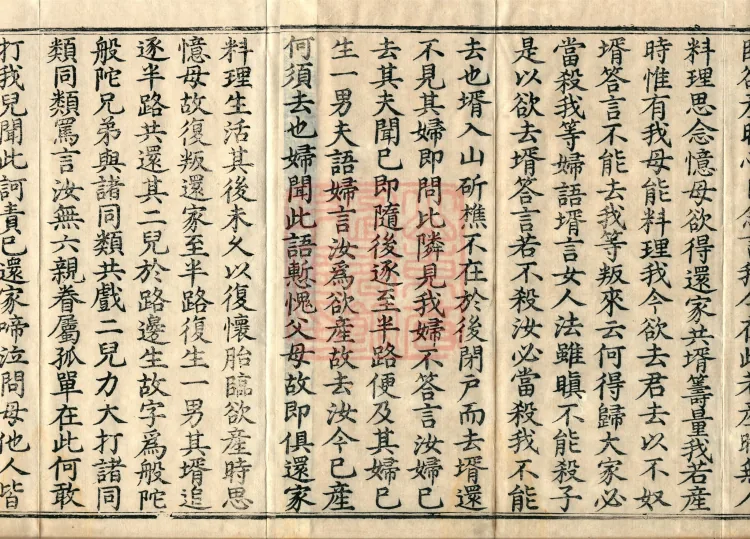 料理思念憶母欲得還家共壻籌量我若產
時惟有我母能料理我今欲去君去以不奴
壻答言不能去我等叛來云何得歸大家必
當殺我等婦語壻言女人法雖瞋不能殺子
是以欲去壻答言若不殺汝必當殺我不能
去也壻入山斫樵不在於後閉戶而去壻還
不見其婦即問比隣見我婦不答言汝婦已
去其夫聞已即隨後逐至半路便及其婦已
生一男夫語婦言汝為欲產故去汝今已產
何須去也婦聞此語慙愧父母故即俱還家
料理生活其後未久以復懷胎臨欲產時思
憶母故復叛還家至半路復生一男其壻追
逐半路共還其二兒於路邊生故字為般陀
般陀兄弟與諸同類共戲二兒力大打諸同
類同類罵言汝無六親眷屬孤單在此何敢
打我兒聞此訶責已還家啼泣問母他人皆